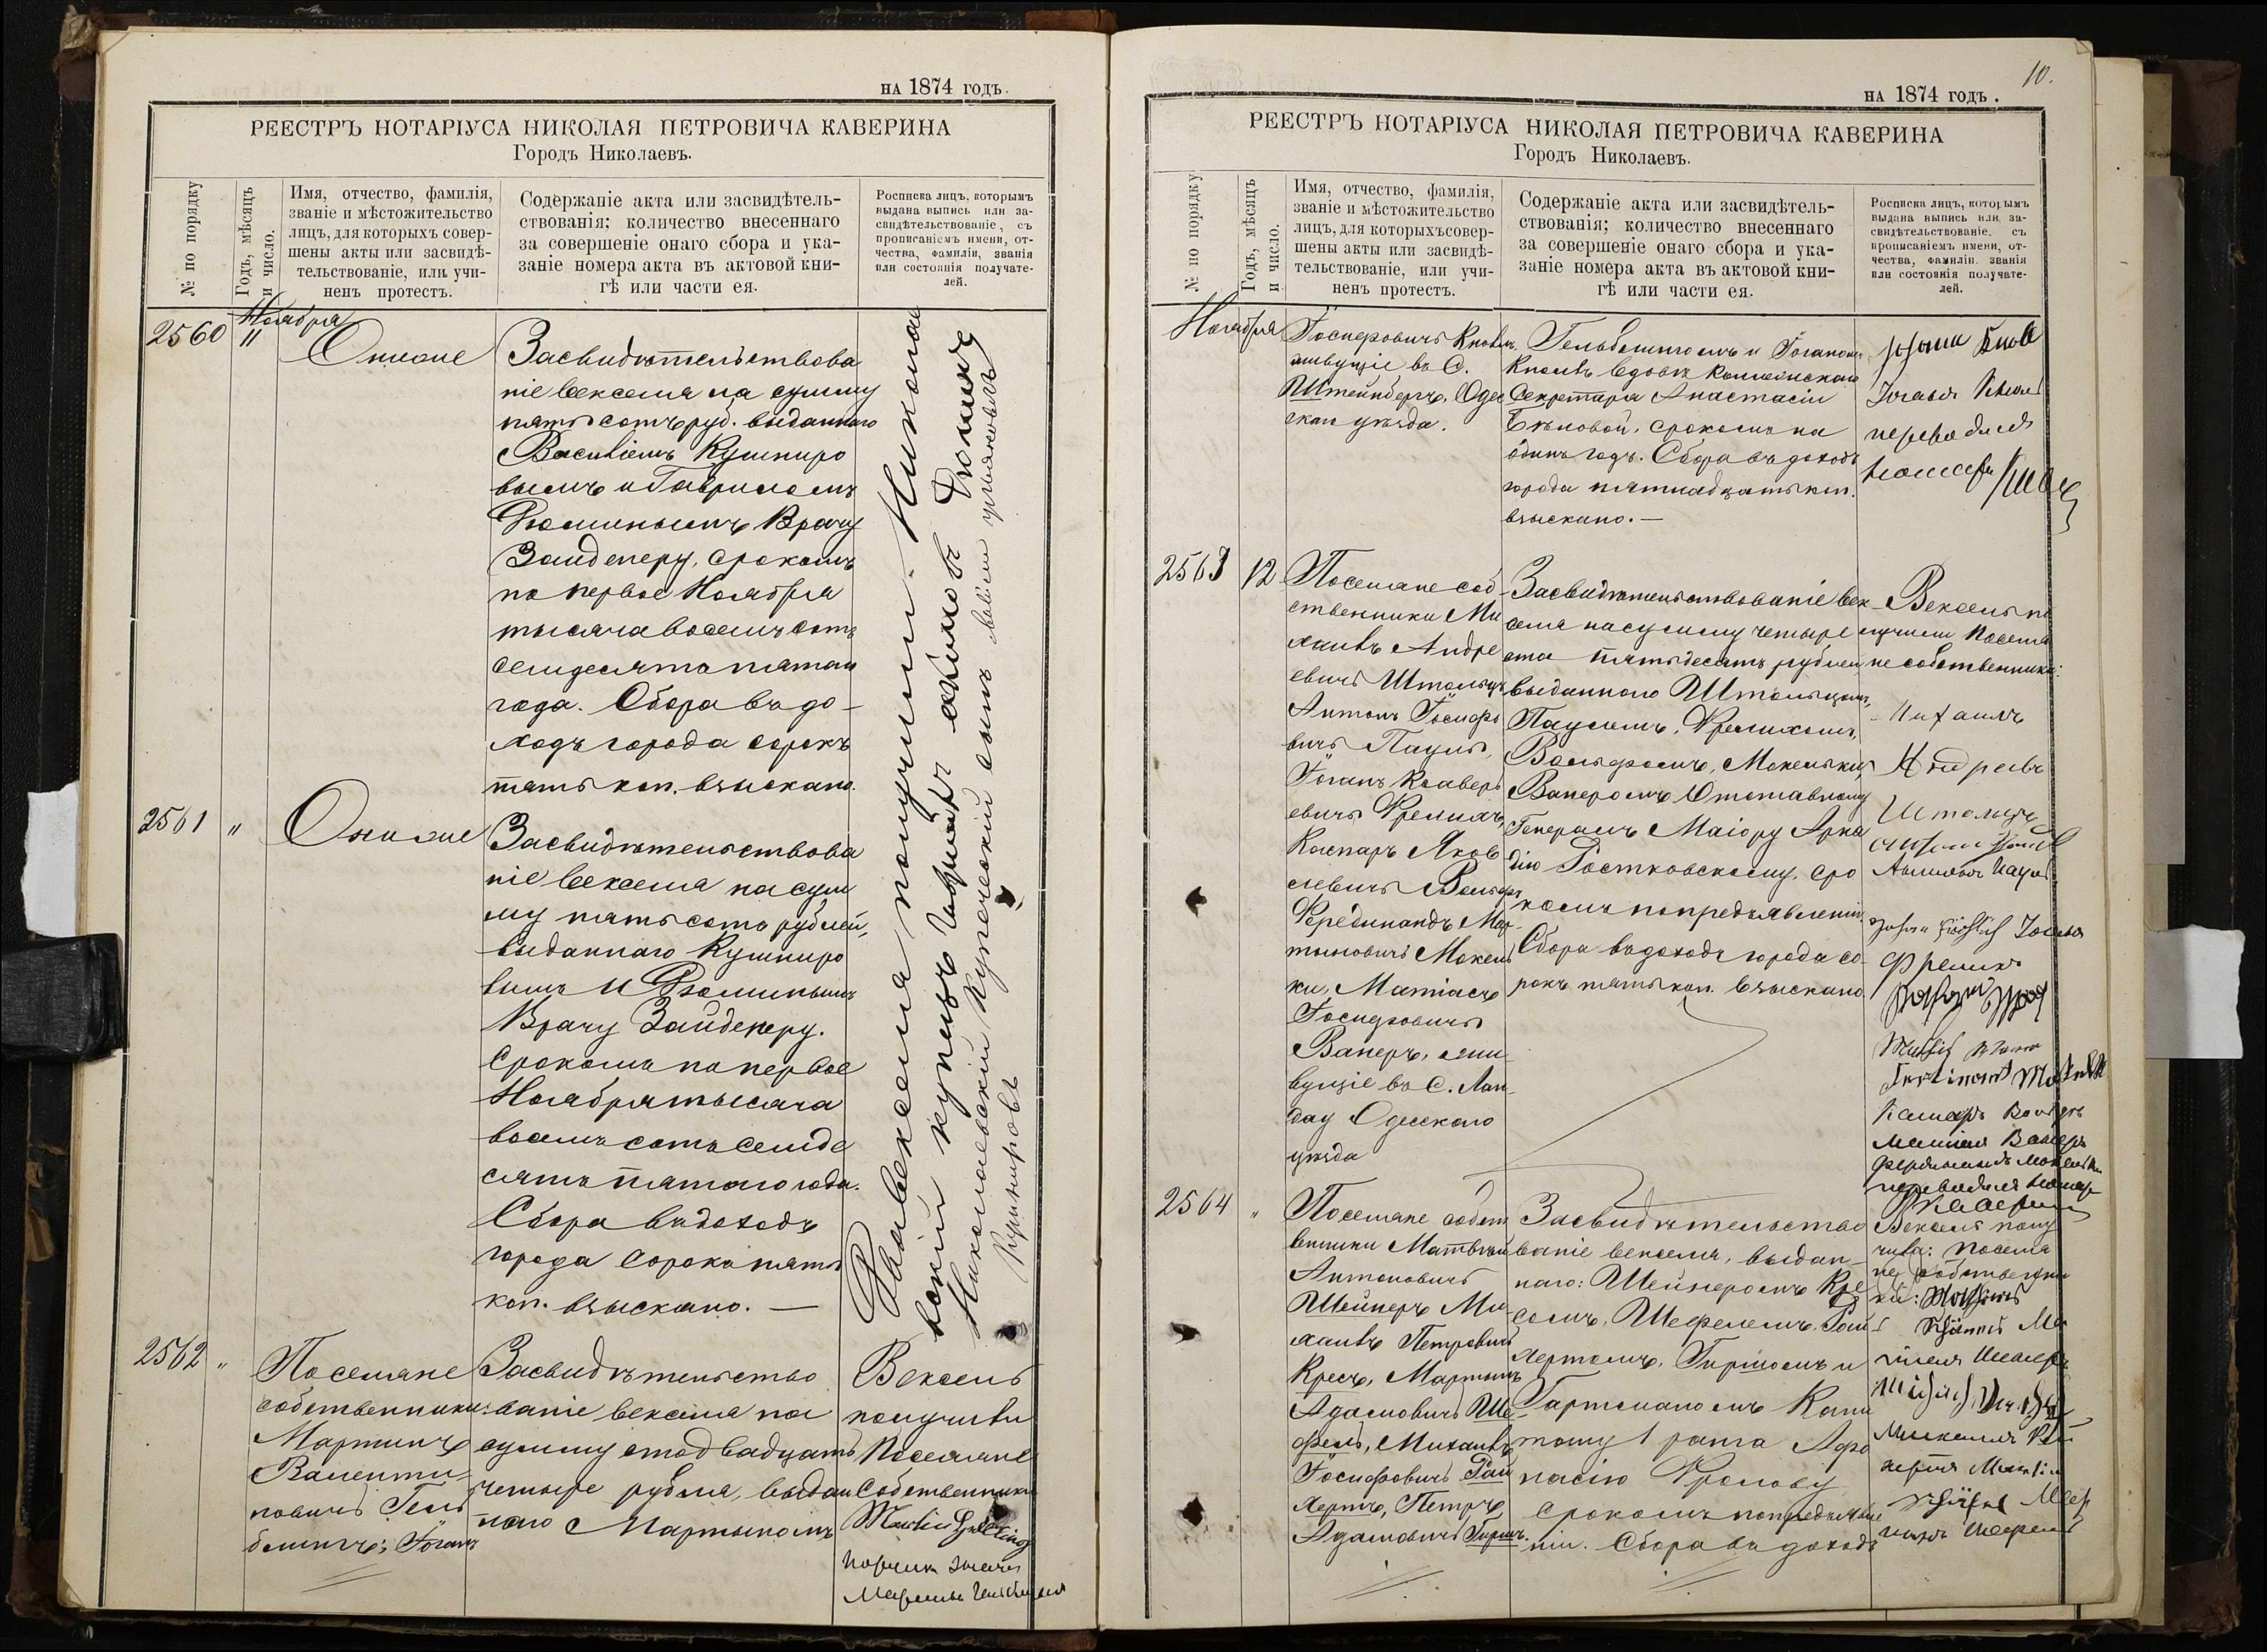 НА 1874 ГОДЪ.
РЕЕСТРЪ НОТАРІУСА НИКОЛАЯ ПЕТРОВИЧА КАВЕРИНА
Городъ Николаевъ.
№ по порядку
Годъ, мѣсяцъ
и число.
Имя, отчество, фамилія,
званіе и мѣстожительство
лицъ, для которыхъ совер-
шены акты или засвидѣ-
тельствованіе, или учи-
ненъ протестъ.
Содержаніе акта или засвидѣтель-
ствованія; количество внесеннаго
за совершеніе онаго сбора и ука-
заніе номера акта въ актовой кни-
гѣ или части ея.
Росписка лицъ, которымъ
выдана выпись или за-
свидѣтельствованіе, съ
прописаніемъ имени, от-
чества, фамиліи, званія
или состоянія получате-
лей.
Ноября
2560 "
Ониже
Засвидѣтельствова
ніе векселя на сумму
пятьсотъ руб. выданнаго
Василіемъ Кушниро
вымъ и Гавриломъ
Рюминымъ Врачу
Зайденеру, срокомъ
по первое Ноября
тысяча восемьсотъ
семдесятъ пятаго
года. Сбора въ до-
ходъ города сорокъ
пять коп. взыскано.
2561 "
Онаже
Засвидѣтельствова
ніе векселя на сум
му пятьсотъ рублей,
выданнаго Кушниро
вымъ и Рюминымъ
Врачу Зайденеру.
Срокомъ по первое
Ноября тысяча
восемьсотъ семде
сятъ пятаго года.
Сбора въ доходъ
города сорокъ пять
коп. взыскано. —
Два векселя получили. Николаев
вскій купецъ Гаврилъ Рюминъ
Николаевскій Купеческій сынъ Василій
Кушнировъ
2562 "
Поселяне
собственники:
Мартинъ
Валенти-
новичъ Гель
блингъ; Іоганъ
Засвидѣтельство
ваніе векселя на
сумму сто двадцать
четыре рубля, выдан
наго Мартыномъ
Вексель
получили
Поселяне
Собственники
Martin Gelbling
НА 1874 ГОДЪ.
10.
РЕЕСТРЪ НОТАРІУСА НИКОЛАЯ ПЕТРОВИЧА КАВЕРИНА
Городъ Николаевъ.
№ по порядку
Годъ, мѣсяцъ
и число.
Имя, отчество, фамилія,
званіе и мѣстожительство
лицъ, для которыхъ совер-
шены акты или засвидѣ-
тельствованіе, или учи-
ненъ протестъ.
Содержаніе акта или засвидѣтель-
ствованія; количество внесеннаго
за совершеніе онаго сбора и ука-
заніе номера акта въ актовой кни-
гѣ или части ея.
Росписка лицъ, которымъ
выдана выпись или за-
свидѣтельствованіе, съ
прописаніемъ имени, от-
чества, фамиліи, званія
или состоянія получате-
лей.
Ноября
Іосифовичъ Кноль
живущіе въ С.
Штейнбергъ, Одес
скаго уѣзда.
Гельблингомъ и Іоганомъ
Кнолъ вдовѣ Коллежскаго
Секретаря Анастасіи
Бѣловой, срокомъ на
одинъ годъ. Сбора въ доходъ
города пятнадцать коп.
взыскано. —
Іоганъ Кноль
переводилъ
2563 12
Поселяне соб-
ственники Ми
хаилъ Андре
евичъ Штольцъ
Антонъ Іосифо
вичъ Пауль,
Іоганъ Ксаверь
евичъ Фрелихъ,
Каспаръ Яков
левичъ Вольфъ,
Фердинандъ Мар-
тыновичъ Мокель
ки, Матіасъ
Іосифовичъ
Ванеръ, жи-
вущіе въ С. Лан-
дау Одесскаго
уѣзда
Засвидѣтельствованіе век-
селя на сумму четыре
ста пятьдесятъ рублей,
выданнаго Штольцомъ,
Паулемъ, Фрелихомъ,
Вольфомъ, Мокельки,
Ванеромъ Отставному
Генералъ Маіору Арка
дію Гостковскому, сро
комъ по предъявленіи.
Сбора въ доходъ города со-
рокъ пять коп. взыскано.
Вексель по
лучили Поселя
не собственники:
Михаилъ
Андреевъ
Штольцъ
Пауль
Іоганъ
Фрелихъ
Каспаръ Вольфъ
Матіасъ Ванеръ
Фердинандъ Мокельки
переводилъ Нотар
Каверинъ
2564 "
Поселяне собст
венники Матвѣй
Антоновичъ
Шейнеръ Ми
хаилъ Петровичъ
Кресъ, Мартынъ
Адамовичъ Ше-
фель, Михаилъ
Іосифовичъ Рай
хертъ, Петръ
Адамовичъ Гиршъ.
Засвидѣтельство
ваніе векселя, выдан-
наго: Шейнеромъ Кре
сомъ, Шефелемъ, Рай
хертомъ, Гиршомъ и
Гартманомъ Капи
тану 1 ранга Афа
насію Фролову
срокомъ по предъявле
ніи. Сбора въ доходъ
Вексель полу
чили: поселя
не собственни
ки: